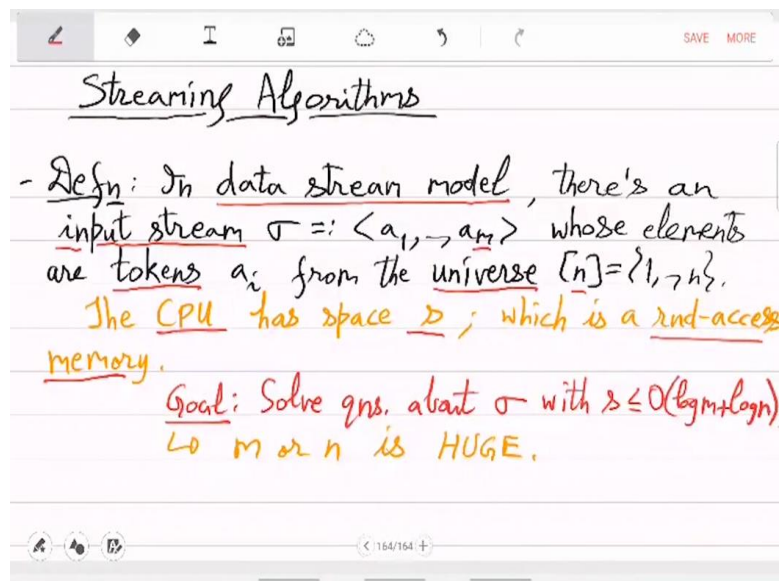 SAVE MORE
Streaming Algorithms
- Defn: In data stream model, there's an
input stream σ =: <a₁,..,aₘ> whose elements
are tokens aᵢ from the universe [n]={1,..,n}.
The CPU has space s; which is a rnd-access
memory.
Goal: Solve qns. about σ with s ≤ O(logm+logn)
↳ m or n is HUGE.
< 164/164 +